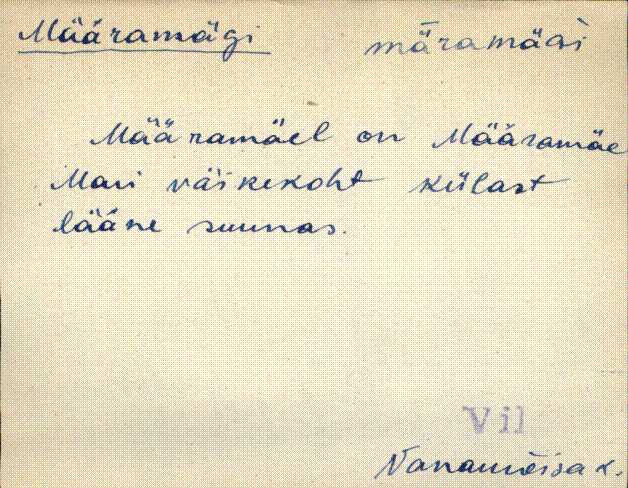 Määramägi mä̅ramäɢi
Määramäel on Määramäe
Mari väikekoht külast
lääne suunas.
Vil
Vanamõisa k.